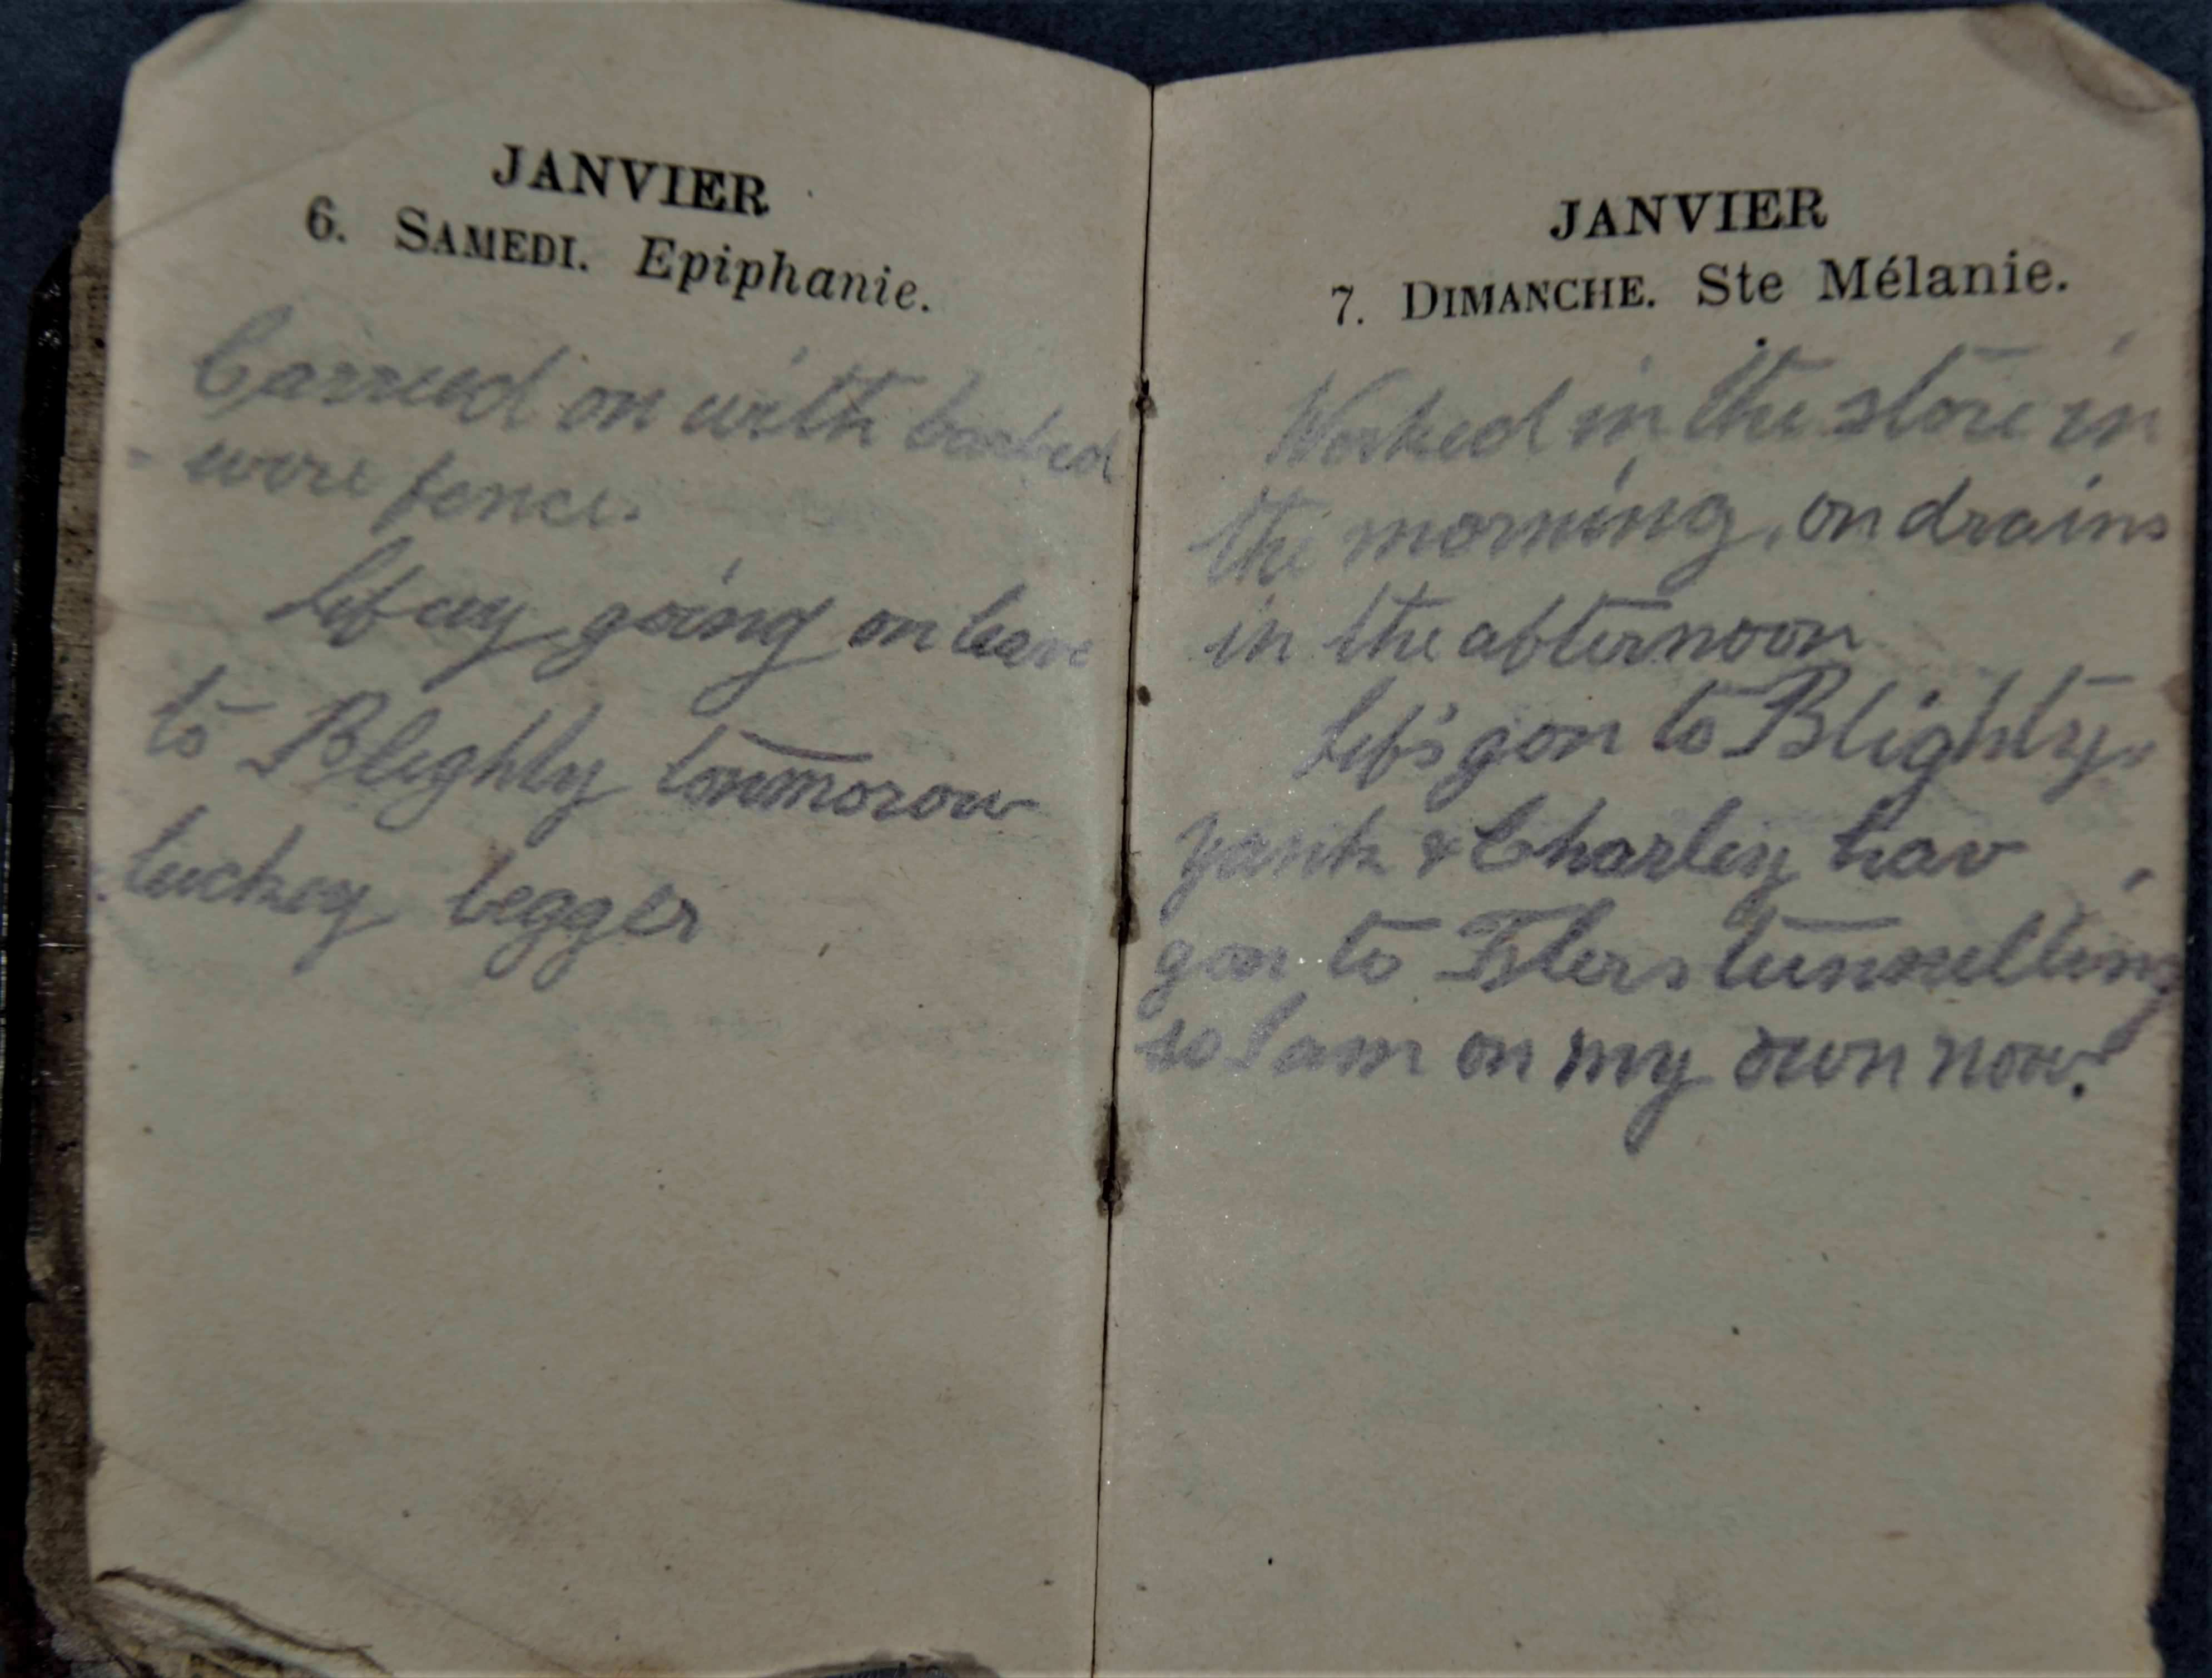 JANVIER
6. SAMEDI. Epiphanie.
Carried on with barbed
wire fence.
going on leave
to Blighty tonmorow
luckey begger
JANVIER
7. DIMANCHE. Ste Mélanie.
Worked in the store in
the morning, on drains
in the afternoon
gon to Blighty.
yank & Charley hav
gon to Flers tunnelling
so I am on my own now.